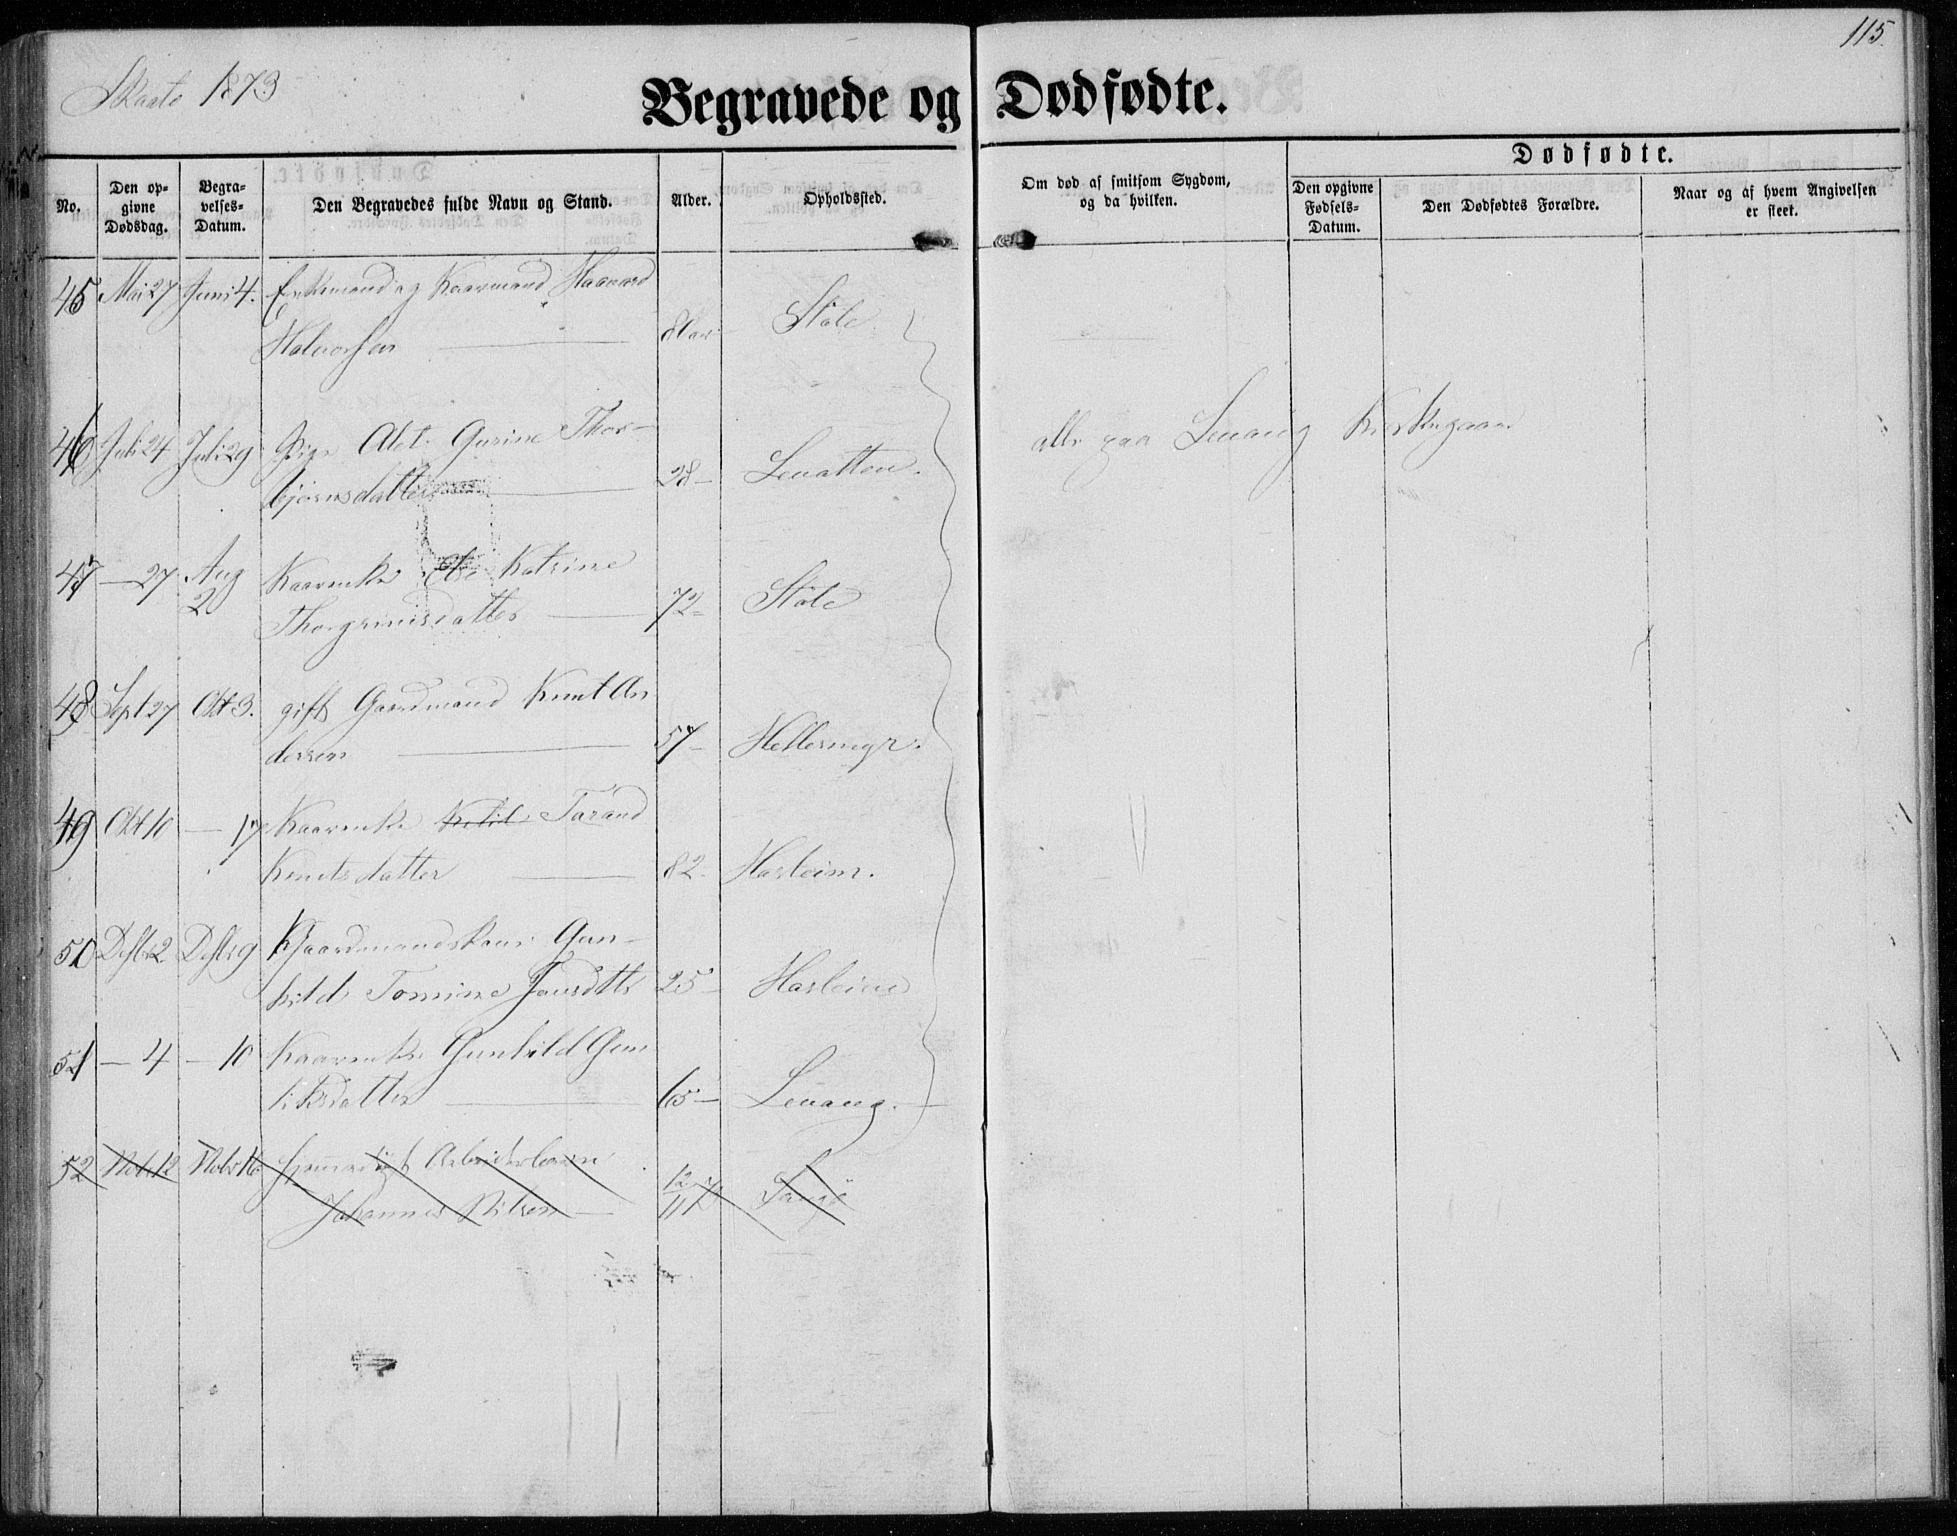 115.
Skaatø 1873
Begravede og Dødfødte.
No.
Den op-
givne
Dødsdag.
Begra-
velses-
Datum.
Den Begravedes fulde Navn og Stand.
Alder.
Opholdssted.
Om død af smitsom Sygdom,
og da hvilken.
Dødfødte.
Den opgivne
Fødsels-
Datum.
Den Dødfødtes Forældre.
Naar og af hvem Angivelsen
er skeet.
45 Mai 27 Juni 4. Enkemand og Kaarmand Haavard
Halvorsen 80 aar Støle
46 Juli 24 Juli 29 Pige Alet Gurine Thor-
bjørnsdatter 28 Levatten.
alle paa Levang Kirkegaard
47 — 27. Aug 2 Kaarenke Else Katrine
Thorgrimsdatter 72 Støle
48 Sept 27 Okt 3. gift Gaardmand Knut An
dersen 57 Hellermyr.
49 Okt 10 — 17 Kaarenke Ketil Tarand
Knutsdatter 82 Hasleim.
50 Desbr 2 Desbr 9 Gaardmandskone Gun-
hild Tomine Jensdtr 25 Hasleim
51 — 4 — 10 Kaarenke Gunhild Gun
liksdatter 65 Levang.
52 Nobr 12 Nobr 16 Arbeiderbarn
Johannes Nilsen 12/11 Langø